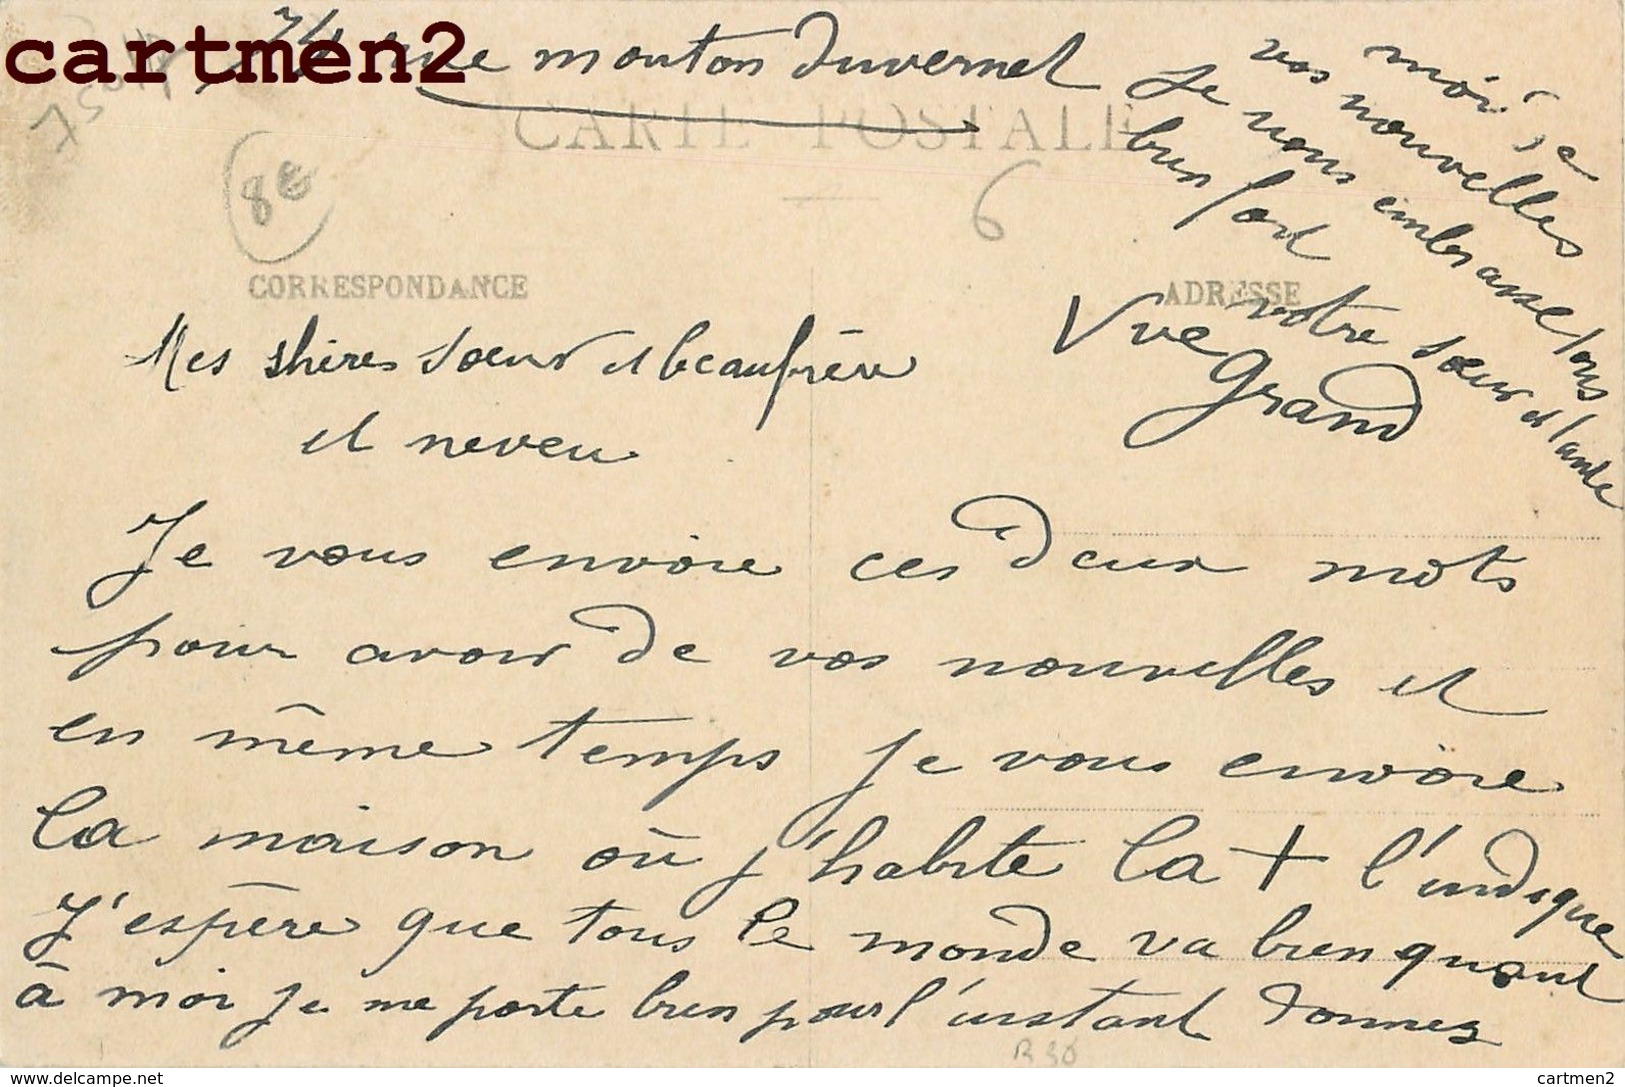 cartmen2
74 rue mouton Duvernet
75014
CARTE POSTALE
8€
6
CORRESPONDANCE
ADRESSE
Mes shères soeur et beaufrère
et neveu
Je vous envoie ces deux mots
pour avoir de vos nouvelles et
en même temps je vous envoie
la maison où j'habite la + l'indique
J'espère que tous le monde va bien quant
à moi je me porte bien pour l'instant donnez
moi de
vos nouvelles
Je vous embrasse tous
bien fort
votre soeur et tante
Vve Grand
R30
www.delcampe.net
cartmen2